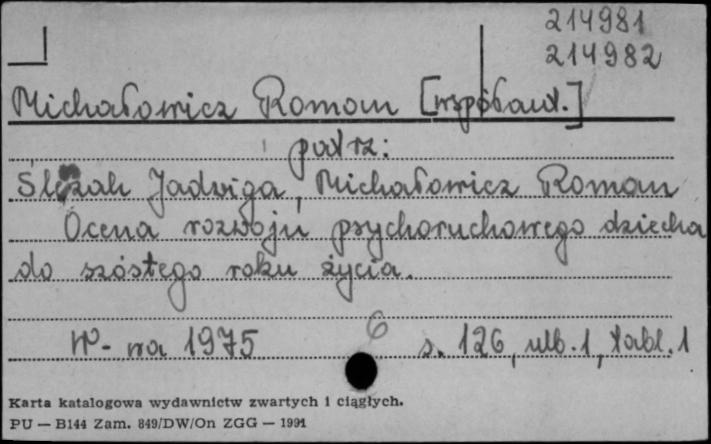 214981
214982
Michałowicz Roman [współaut.]
patrz:
Ślężak Jadwiga, Michałowicz Roman
Ocena rozwoju psychoruchowego dziecka
do szóstego roku życia.
W-wa 1975 6 s. 126, nlb. 1, tabl. 1
Karta katalogowa wydawnictw zwartych i ciągłych.
PU — B144 Zam. 849/DW/On ZGG — 1991